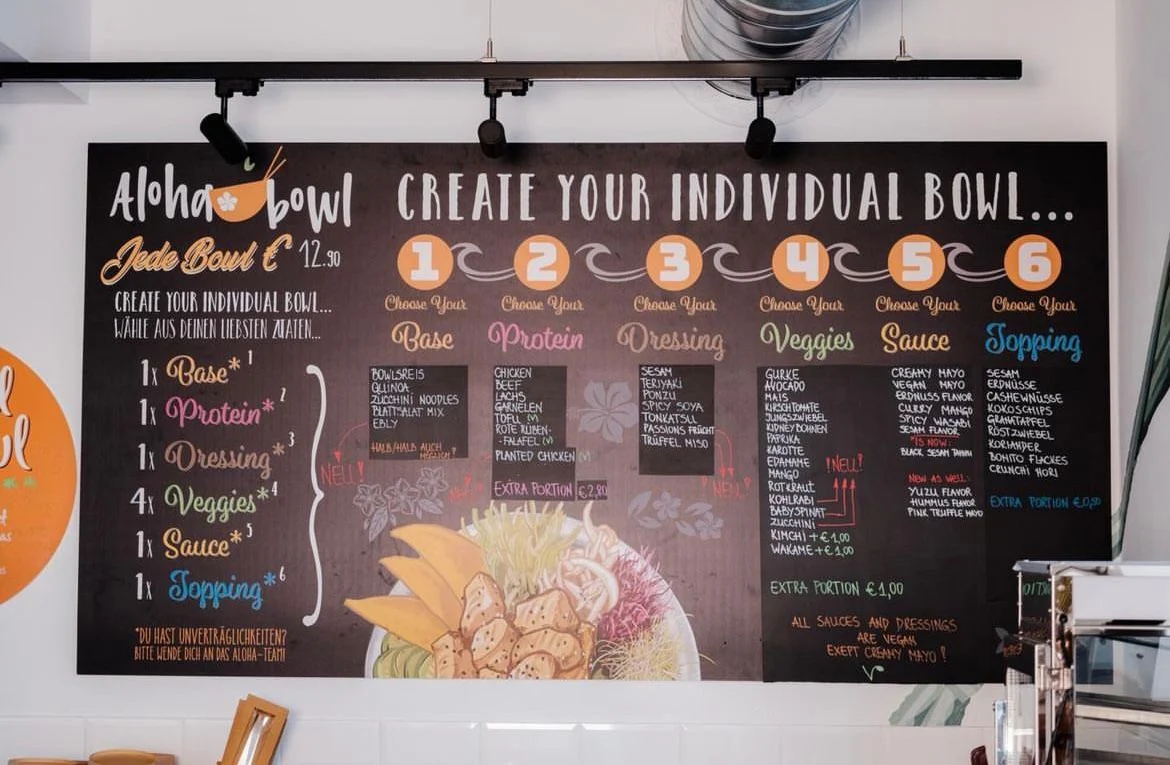 Aloha bowl
Jede Bowl € 12.90
CREATE YOUR INDIVIDUAL BOWL...
WÄHLE AUS DEINEN LIEBSTEN ZUTATEN...
1x Base*1
1x Protein*2
1x Dressing*3
4x Veggies*4
1x Sauce*5
1x Topping*6
*DU HAST UNVERTRÄGLICHKEITEN?
BITTE WENDE DICH AN DAS ALOHA-TEAM!!
CREATE YOUR INDIVIDUAL BOWL...
1
Choose Your
Base
BOWLSREIS
QUINOA
ZUCCHINI NOODLES
BLATTSALAT MIX
EBLY
HALB/HALB AUCH
MÖGLICH!
NEU!
2
Choose Your
Protein
CHICKEN
BEEF
LACHS
GARNELEN
TOFU (V)
ROTE RÜBEN-
-FALAFEL (V)
PLANTED CHICKEN (V)
EXTRA PORTION €2,80
3
Choose Your
Dressing
SESAM
TERIYAKI
PONZU
SPICY SOYA
TONKATSU
PASSIONS FRUCHT
TRÜFFEL MISO
NEU!
4
Choose Your
Veggies
GURKE
AVOCADO
MAIS
KIRSCHTOMATE
JUNGZWIEBEL
KIDNEYBOHNEN
PAPRIKA
KAROTTE
EDAMAME
MANGO
ROTKRAUT
KOHLRABI
BABYSPINAT
ZUCCHINI
KIMCHI +€1,00
WAKAME +€1,00
!NEU!
EXTRA PORTION €1,00
5
Choose Your
Sauce
CREAMY MAYO
VEGAN MAYO
ERDNUSS FLAVOR
CURRY MANGO
SPICY WASABI
SESAM FLAVOR
*IS NOW:
BLACK SESAM TAHIN
NEW AS WELL:
YUZU FLAVOR
HUMMUS FLAVOR
PINK TRUFFLE MAYO
6
Choose Your
Topping
SESAM
ERDNÜSSE
CASHEWNÜSSE
KOKOSCHIPS
GRANATAPFEL
RÖSTZWIEBEL
KORIANDER
BONITO FLACKES
CRUNCHY NORI
EXTRA PORTION €0,50
ALL SAUCES AND DRESSINGS
ARE VEGAN
EXEPT CREAMY MAYO!